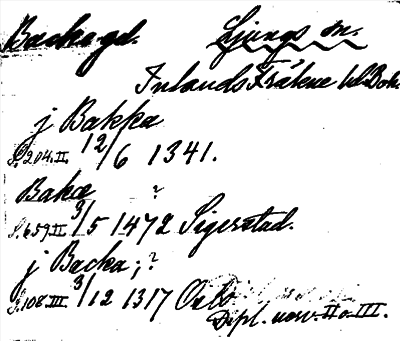 Backa gd. Ljungs sn.
Inlands Fräkne hd. Boh.
j Bakka
S. 204. II. 12/6 1341.
Bakæ ?
S. 659 II 3/5 1472 Sigerstad.
j Backa; ?
S. 108. III. 3/12 1317 Oslo
Dipl. norv. II o. III.